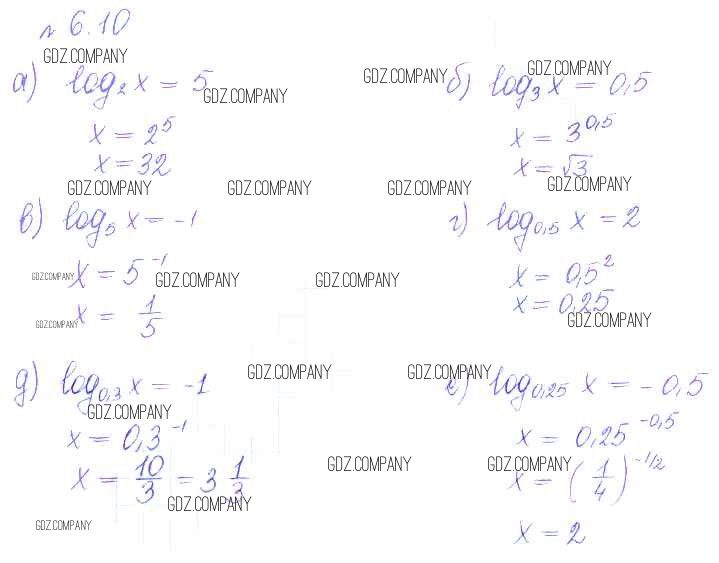 № 6.10
GDZ.COMPANY
а) log₂ x = 5
GDZ.COMPANY
x = 2⁵
x = 32
GDZ.COMPANY
GDZ.COMPANY
GDZ.COMPANY
б) log₃ x = 0,5
x = 3^0,5
x = √3
GDZ.COMPANY
GDZ.COMPANY
GDZ.COMPANY
в) log₅ x = -1
GDZ.COMPANY
x = 5⁻¹
GDZ.COMPANY
GDZ.COMPANY
x = 1/5
GDZ.COMPANY
г) log₀,₅ x = 2
x = 0,5²
x = 0,25
GDZ.COMPANY
д) log₀,₃ x = -1
GDZ.COMPANY
GDZ.COMPANY
x = 0,3⁻¹
x = 10/3 = 3 1/3
GDZ.COMPANY
GDZ.COMPANY
GDZ.COMPANY
е) log₀,₂₅ x = -0,5
x = 0,25^-0,5
GDZ.COMPANY
GDZ.COMPANY
x = (1/4)^-1/2
x = 2